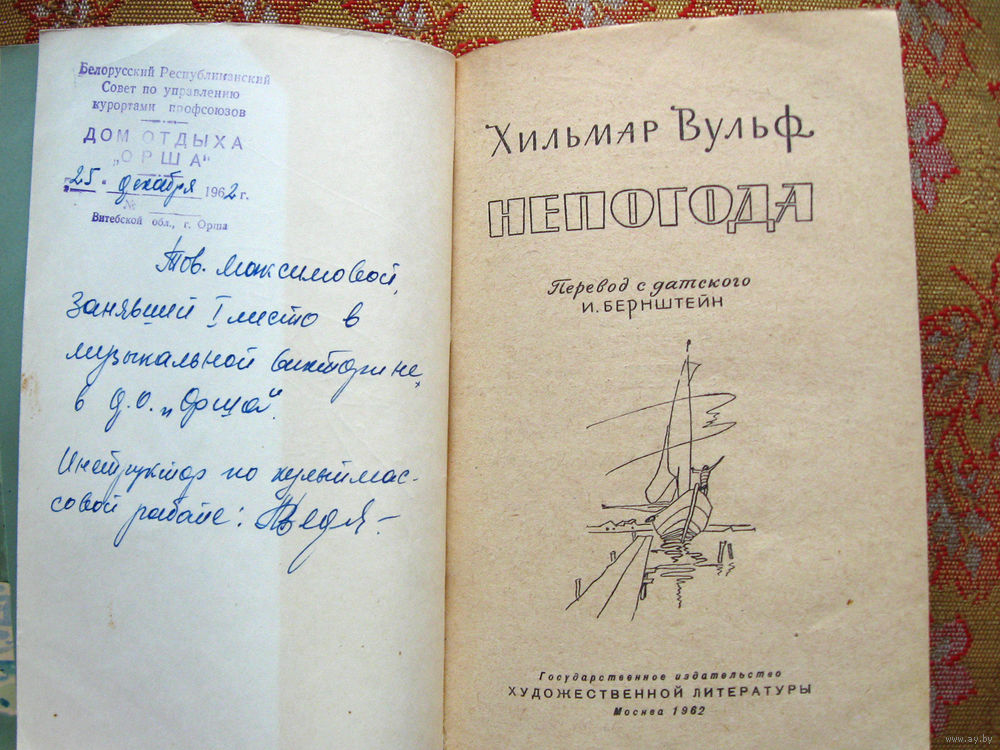 Белорусский Республиканский
Совет по управлению
курортами профсоюзов
ДОМ ОТДЫХА
„ОРША"
„25" декабря 1962 г.
№
Витебской обл., г. Орша
Тов. Максимовой,
занявшей I место в
музыкальной викторине,
в д.о. „Орша".
Инструктор по культмас-
совой работе:
Хильмар Вульф
НЕПОГОДА
Перевод с датского
И. БЕРНШТЕЙН
Государственное издательство
ХУДОЖЕСТВЕННОЙ ЛИТЕРАТУРЫ
Москва 1962
www.ay.by